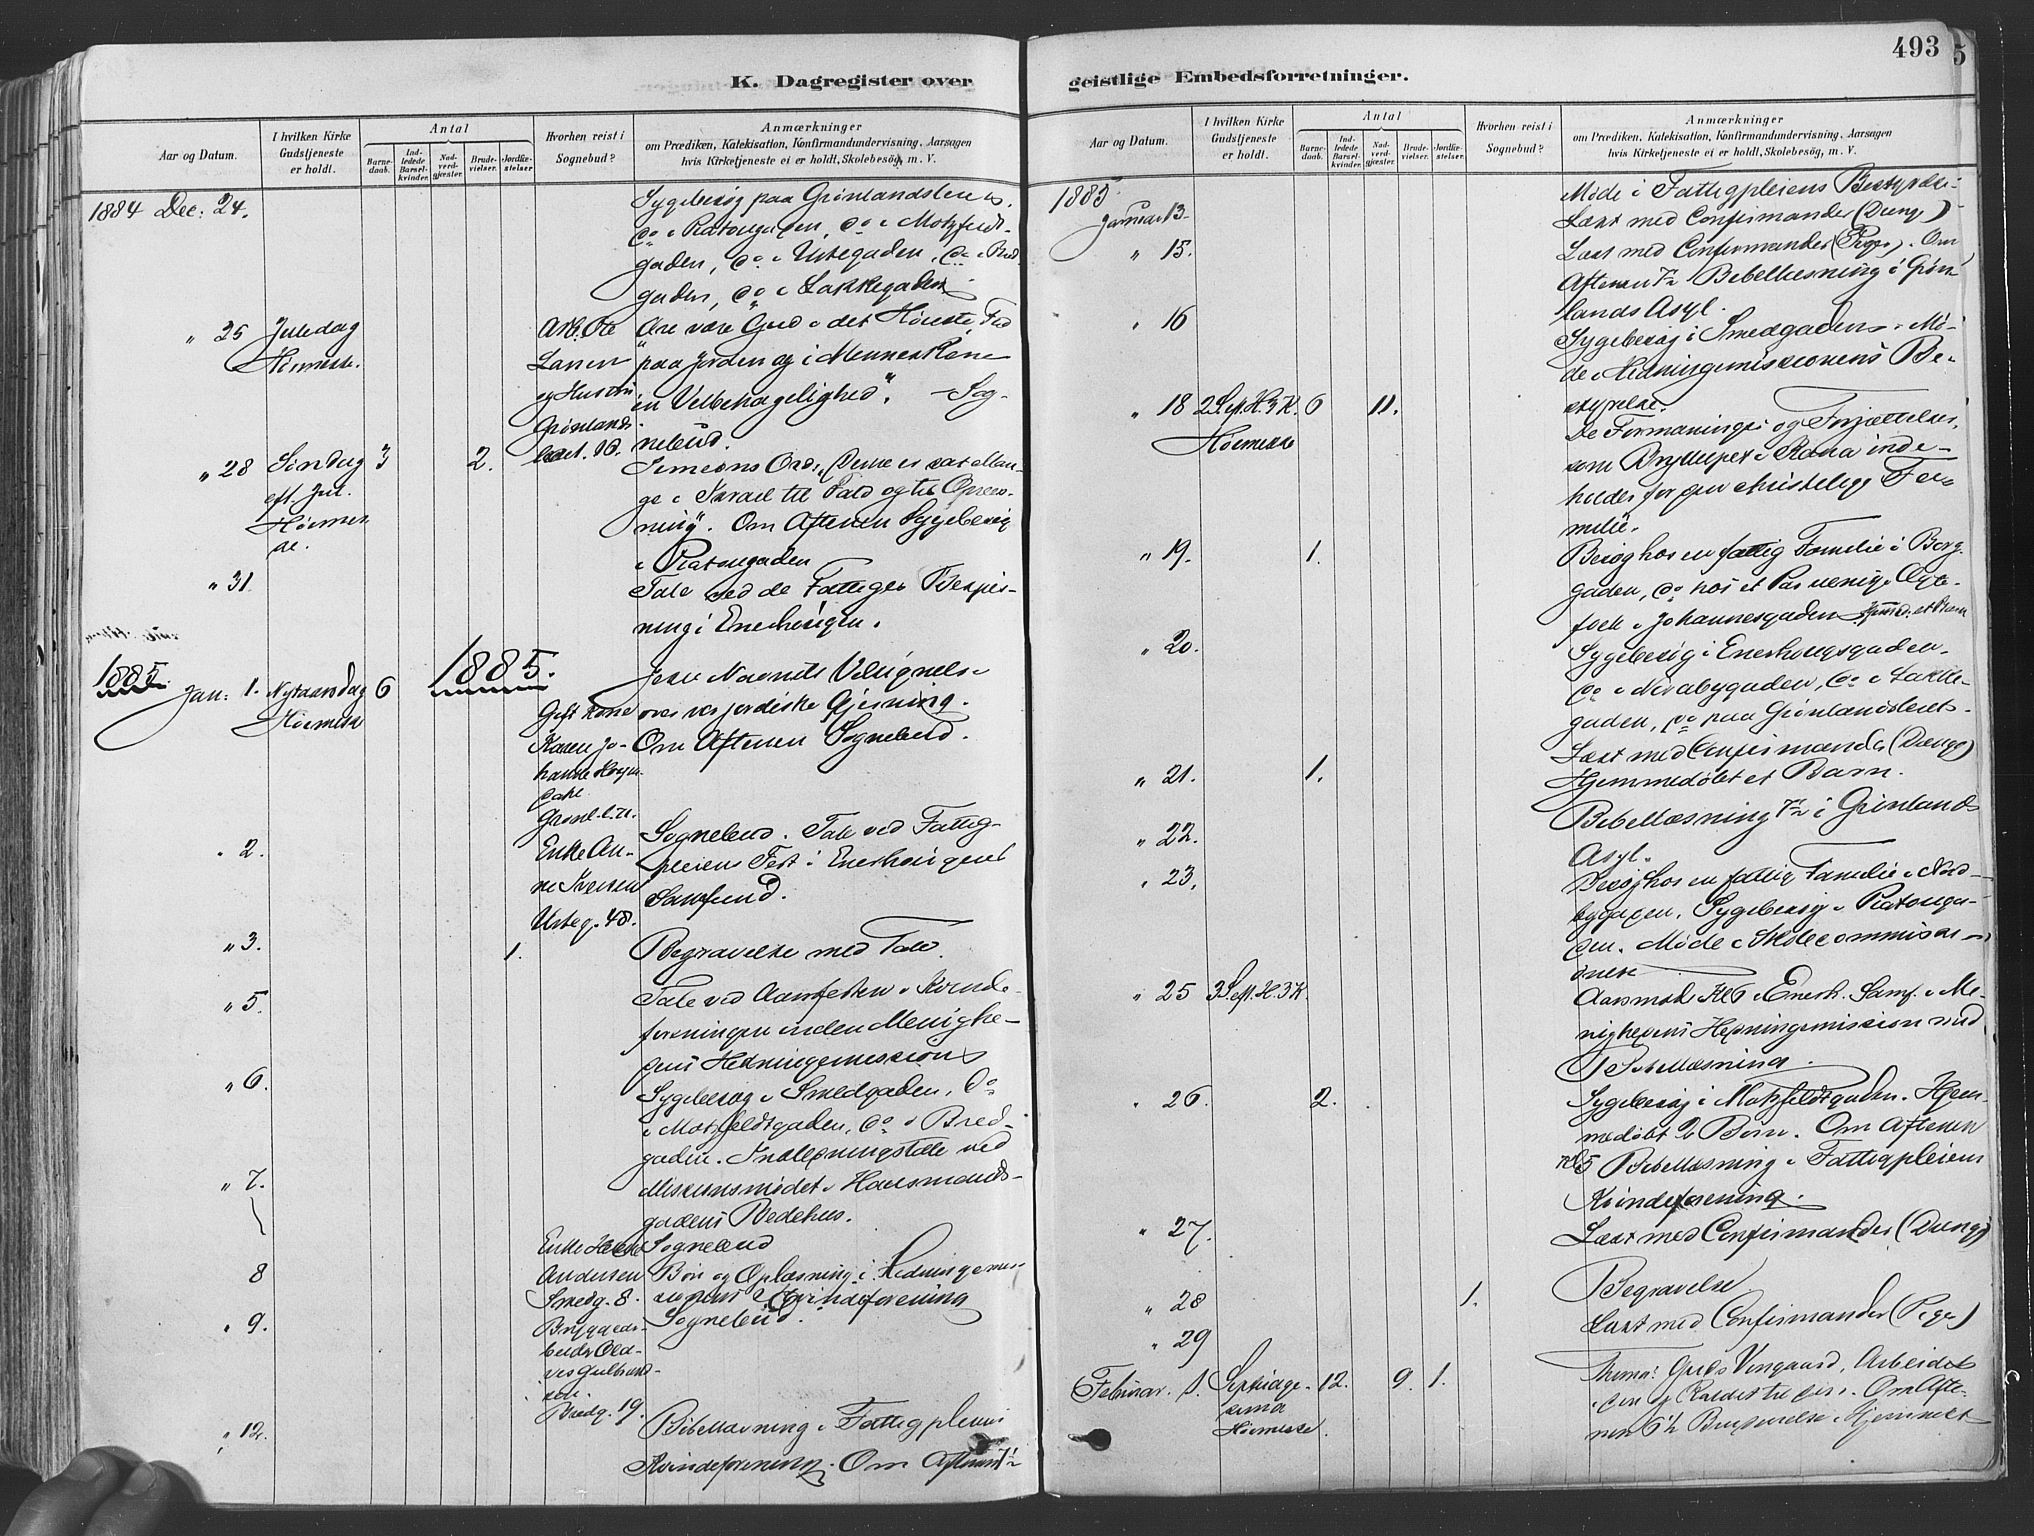 493
5
K. Dagregister over
geistlige Embedsforretninger.
Aar og Datum.
I hvilken Kirke
Gudstjeneste
er holdt.
Antal
Barne-
daab.
Ind-
ledede
Barsel-
kvinder.
Nad-
verd-
gjæster.
Brude-
vielser.
Jordfæ-
stelser.
Hvorhen reist i
Sognebud?
Anmærkninger
om Prædiken, Katekisation, Konfirmandundervisning, Aarsagen
hvis Kirketjeneste ei er holdt, Skolebesøg, m. V.
1884 Dec: 24.
Sygebesøg paa Grønlandsleret.
do i Platougaden, do i Motzfeldt-
gaden, do i Urtegaden, do i Bred-
gaden, do i Lakkegaden
" 25 Juledag
Høimesse.
Arb. Ole
Larsen
og Hustru
Grønlands-
leret.
Ære være Gud i det Høieste, Fred
paa Jorden og i Menneskene
en Velbehagelighed". – Sog-
nebud.
" 28 Søndag 3 2.
eft. Jul.
Høimes
se.
Simeons Ord: (Denne er sat Man-
ge i Israel til Fald og til Opreis-
ning". Om Aftenen Sygebesøg
i Platougaden
" 31
Tale ved de Fattiges Bespis-
ning i Enerhaugen.
1885
1885.
Jan: 1. Nytaarsdag 6
Høimesse
Gift Kone
Karen Jo-
hanne
Grønl.l.
Jesu Navnets Velsignelse
over vor jordiske Gjerning.
Om Aftenen Sognebud.
" 2.
Enke An-
ne Iversen
Urteg. 48.
Sognebud. Tale ved Fattig-
pleiens Fest i Enerhaugens
Samfund.
" 3. 1.
Begravelse med Tale.
" 5.
Tale ved Aarsfesten i Kvinde-
foreningen inden Menighe-
dens Hedningemission
" 6.
Sygebesøg i Smedgaden, do
i Motzfeldtgaden, do i Bred-
gaden. Indledningstale ved
" 7.
Missionsmødet i Hausmands-
gadens Bedehus.
Enke
Andersen
Smedg. 8.
Sognebud
8
Bøn og Oplæsning i Hedningemis-
sionens Kvindeforening
" 9.
Sognebud.
Bredg. 19.
" 12.
Bibellæsning i Fattigpleiens
Kvindeforening. Om Aftenen 7½
Aar og Datum.
I hvilken Kirke
Gudstjeneste
er holdt.
Antal
Barne-
daab.
Ind-
ledede
Barsel-
kvinder.
Nad-
verd-
gjæster.
Brude-
vielser.
Jordfæ-
stelser.
Hvorhen reist i
Sognebud?
Anmærkninger
om Prædiken, Katekisation, Konfirmandundervisning, Aarsagen
hvis Kirketjeneste ei er holdt, Skolebesøg, m. V.
1885
Januar 13.
Møde i Fattigpleiens Bestyrelse.
Læst med Confirmander (Drenge)
" 15.
Læst med Confirmander (Piger). Om
Aftenen 7½ Bibellæsning i Grøn-
lands Asyl.
" 16
Sygebesøg i Smedgaden. Mø-
de i Hedningemissionens Be-
styrelse.
" 18 2 S. e. H. 3 K. 6 11.
Høimesse
De Formaninger og Forjættelser,
som Brylluppet i Kana inde-
holder for den christelige Fa-
milie.
" 19. 1.
Besøg hos en fattig Familie i Borg-
gaden, do hos et Par uenige Ægte-
folk i Johannesgaden. Hjemmed. et Barn
" 20.
Sygebesøg i Enerhougsgaden,
do i Norbygaden, do i Lakke-
gaden, do paa Grønlandsleret.
Læst med Confirmander (Drenge)
" 21. 1.
Hjemmedøbt et Barn.
" 22.
Bibellæsning 7½ i Grønlands
Asyl.
" 23.
Besøg hos en fattig Familie i Nord-
bygaden. Sygebesøg i Platouga-
den. Møde i Skolecommissi-
onen
" 25 3 S. e. H. 3 K.
Aarsmøde Kl 6 i Enerh. Samf. i Me-
nighedens Hedningemission med
Bibellæsning.
" 26. 2.
Sygebesøg i Motzfeldtgaden. Hjem-
medøbt 2 Børn. Om Aftenen
Kl 5 Bibellæsning i Fattigpleiens
Kvindeforening.
" 27.
Læst med Confirmander (Drenge)
" 28 1.
Begravelse
" 29
Læst med Confirmander (Piger)
Februar 1. Septuage- 12. 9. 1.
sima
Høimesse.
Thema: Guds Vingaard, Arbeidet
i den og Kaldet til den. Om Afte-
nen 6½